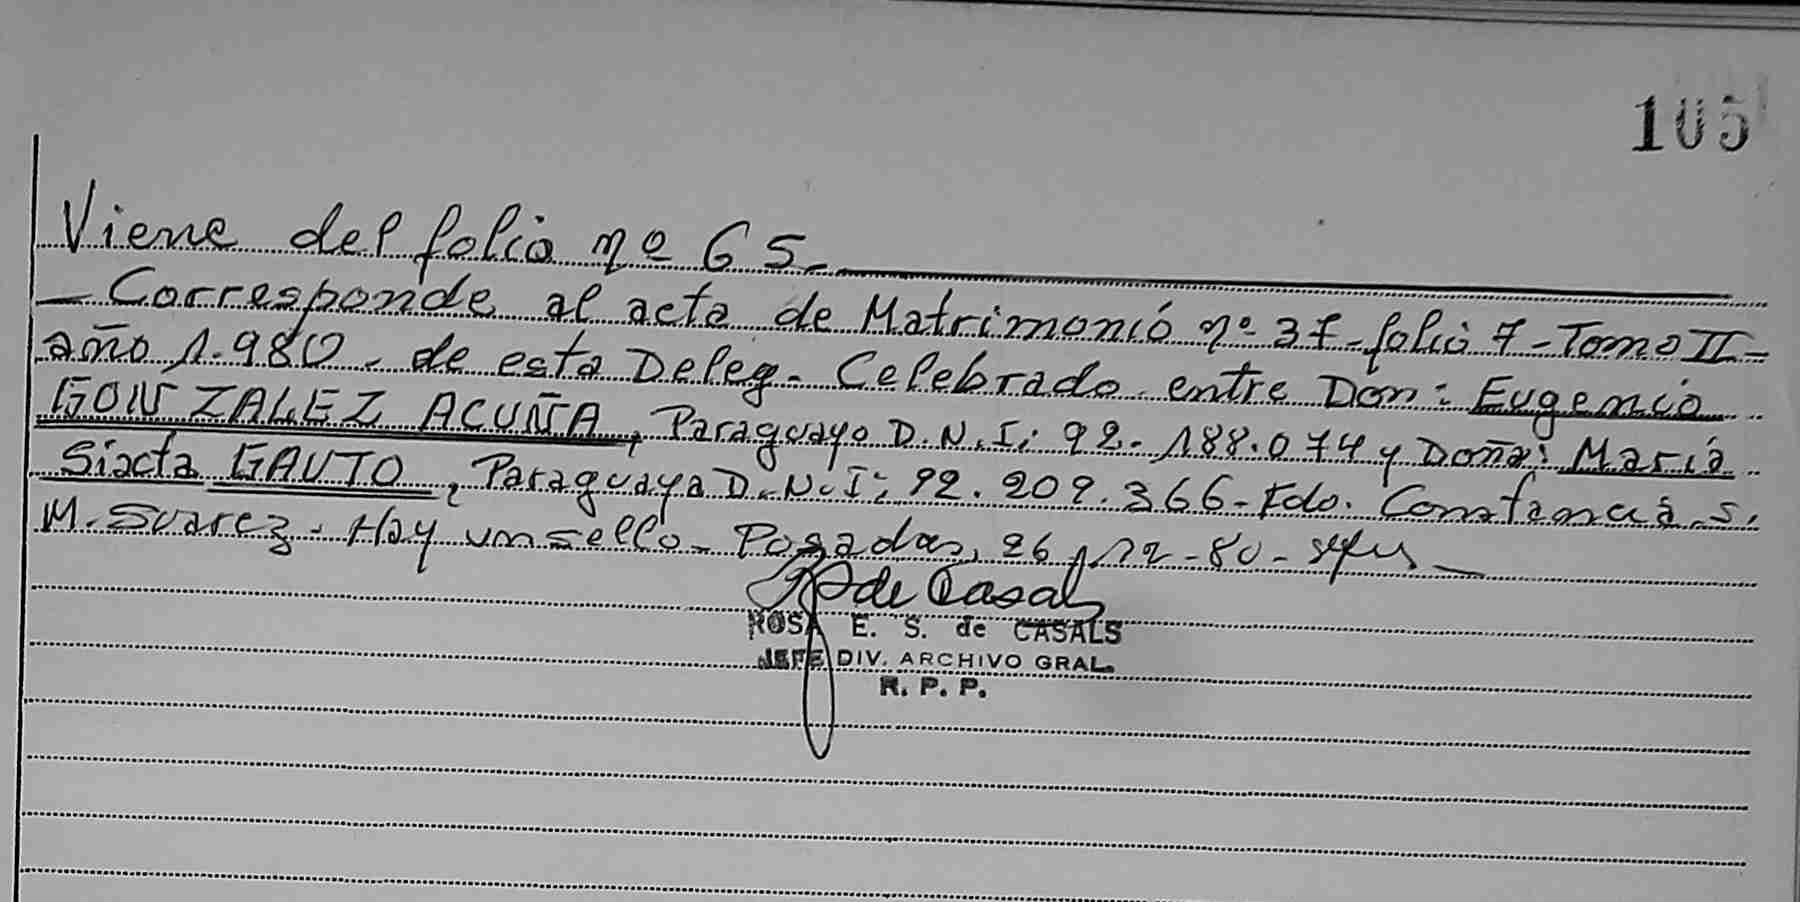 105
Viene del folio nº 65.
- Corresponde al acta de Matrimonio nº 37 - folio 7 - Tomo II -
año 1.980. de esta Deleg. Celebrado entre Don: Eugenio
GONZALEZ ACUÑA, Paraguayo D.N.I: 92.188.074 y Doña: María
Sixta GAUTO, Paraguaya D.N.I: 92.209.366 - Fdo. Constancia S.
M. Suarez. Hay un sello - Posadas, 26
de Casals
ROSA E. S. de CASALS
JEFE DIV. ARCHIVO GRAL.
R. P. P.